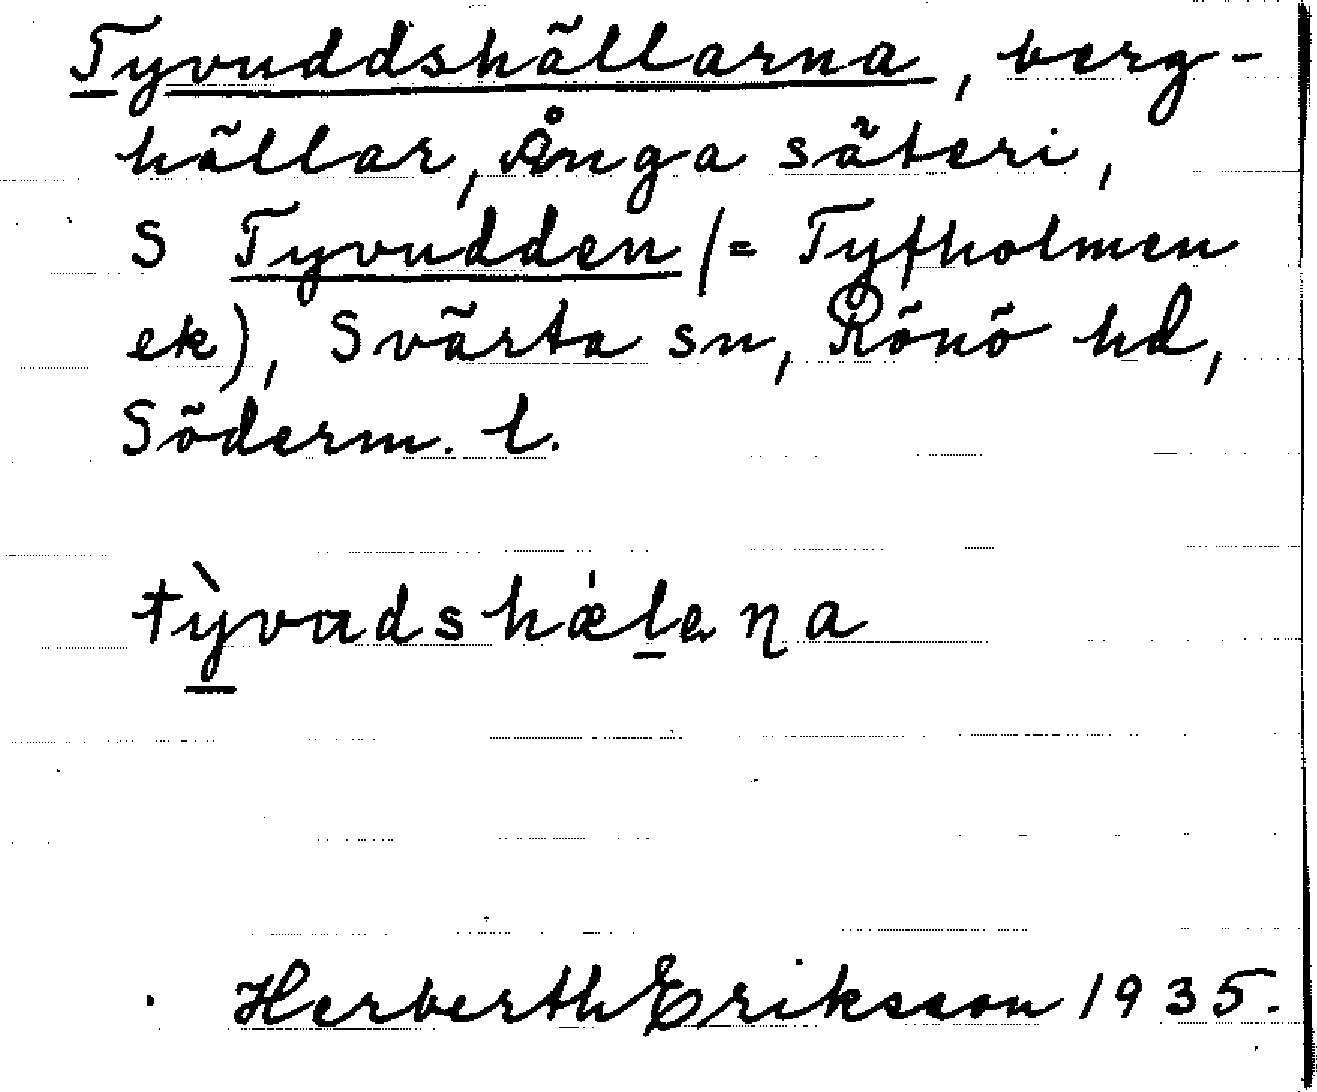 Tyvuddshällarna, berg-
hällar, Ånga säteri,
S Tyvudden (= Tyfholmen
ek), Svärta sn, Rönö hd,
Söderm. l.
tỳvudshæ̍laɳa
Herberth Eriksson 1935.